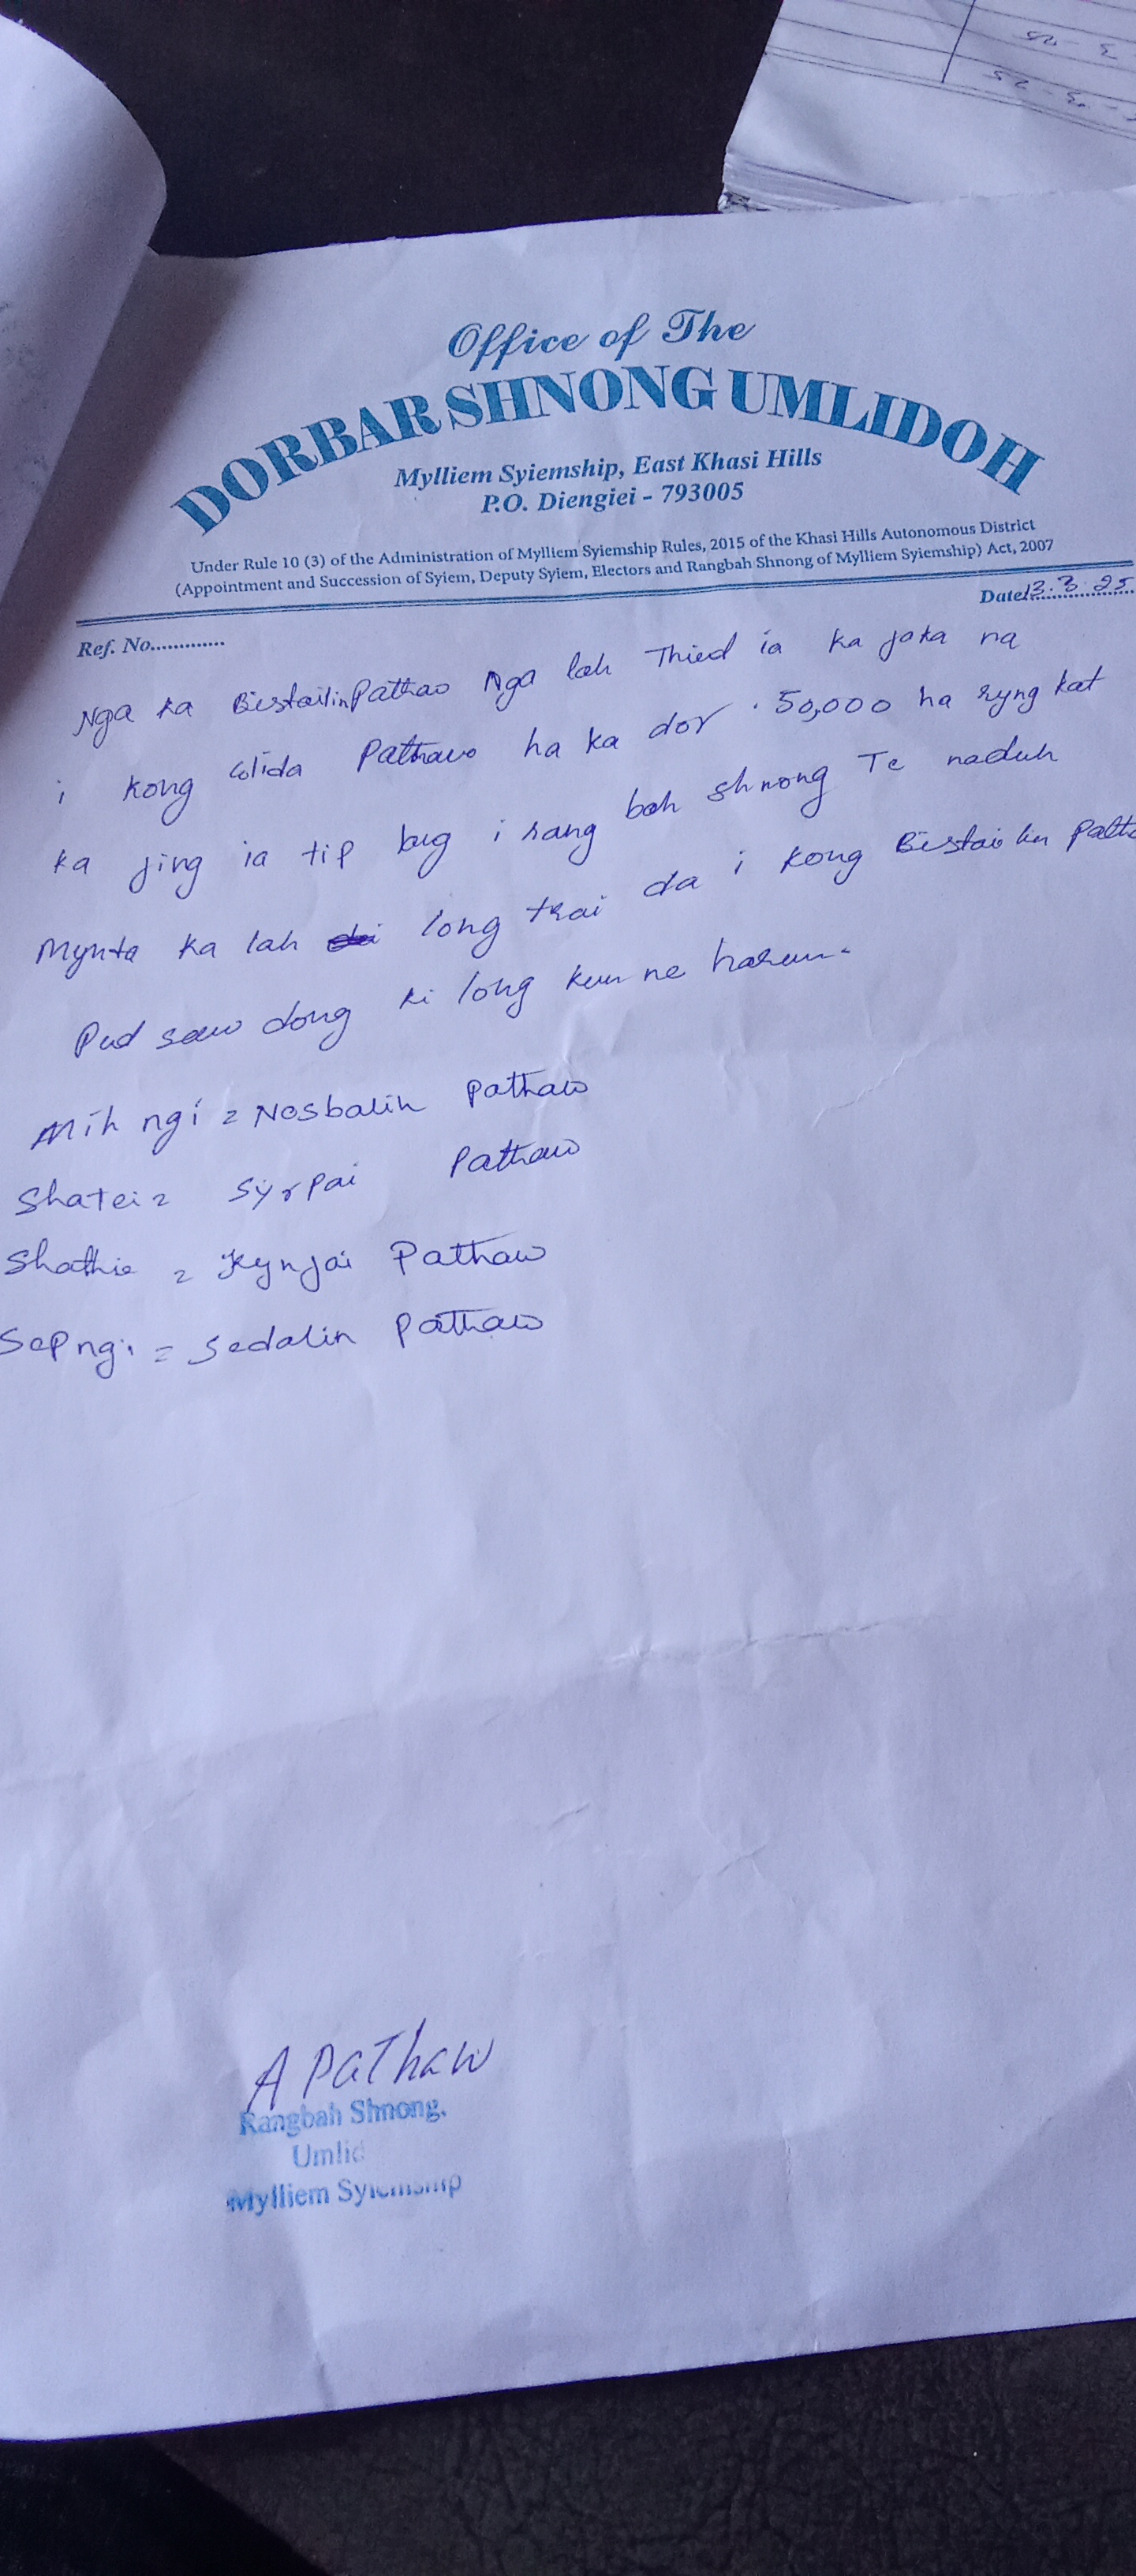 Office of The
DORBAR SHNONG UMLIDOH
Mylliem Syiemship, East Khasi Hills
P.O. Diengiei - 793005
Under Rule 10 (3) of the Administration of Mylliem Syiemship Rules, 2015 of the Khasi Hills Autonomous District
(Appointment and Succession of Syiem, Deputy Syiem, Electors and Rangbah Shnong of Mylliem Syiemship) Act, 2007
Date 13.3.25
Ref. No.............
Nga ka Bistailin Pathaw Nga lah Thied ia ka jaka na
i kong Pathaw ha ka dor 50,000 ha ryng kat
ka jing ia tip bug i rang bah shnong Te naduh
Mynta ka lah long trai da i kong Bistailin
Pud saw dong ki long kum ne harum.
Mih ngi = Nosbalin Pathaw
Shatei = Syrpai Pathaw
Shathie = Kynjai Pathaw
Sepngi = Sedalin Pathaw
A Pathaw
Rangbah Shnong,
Umlid
Mylliem Syiemship